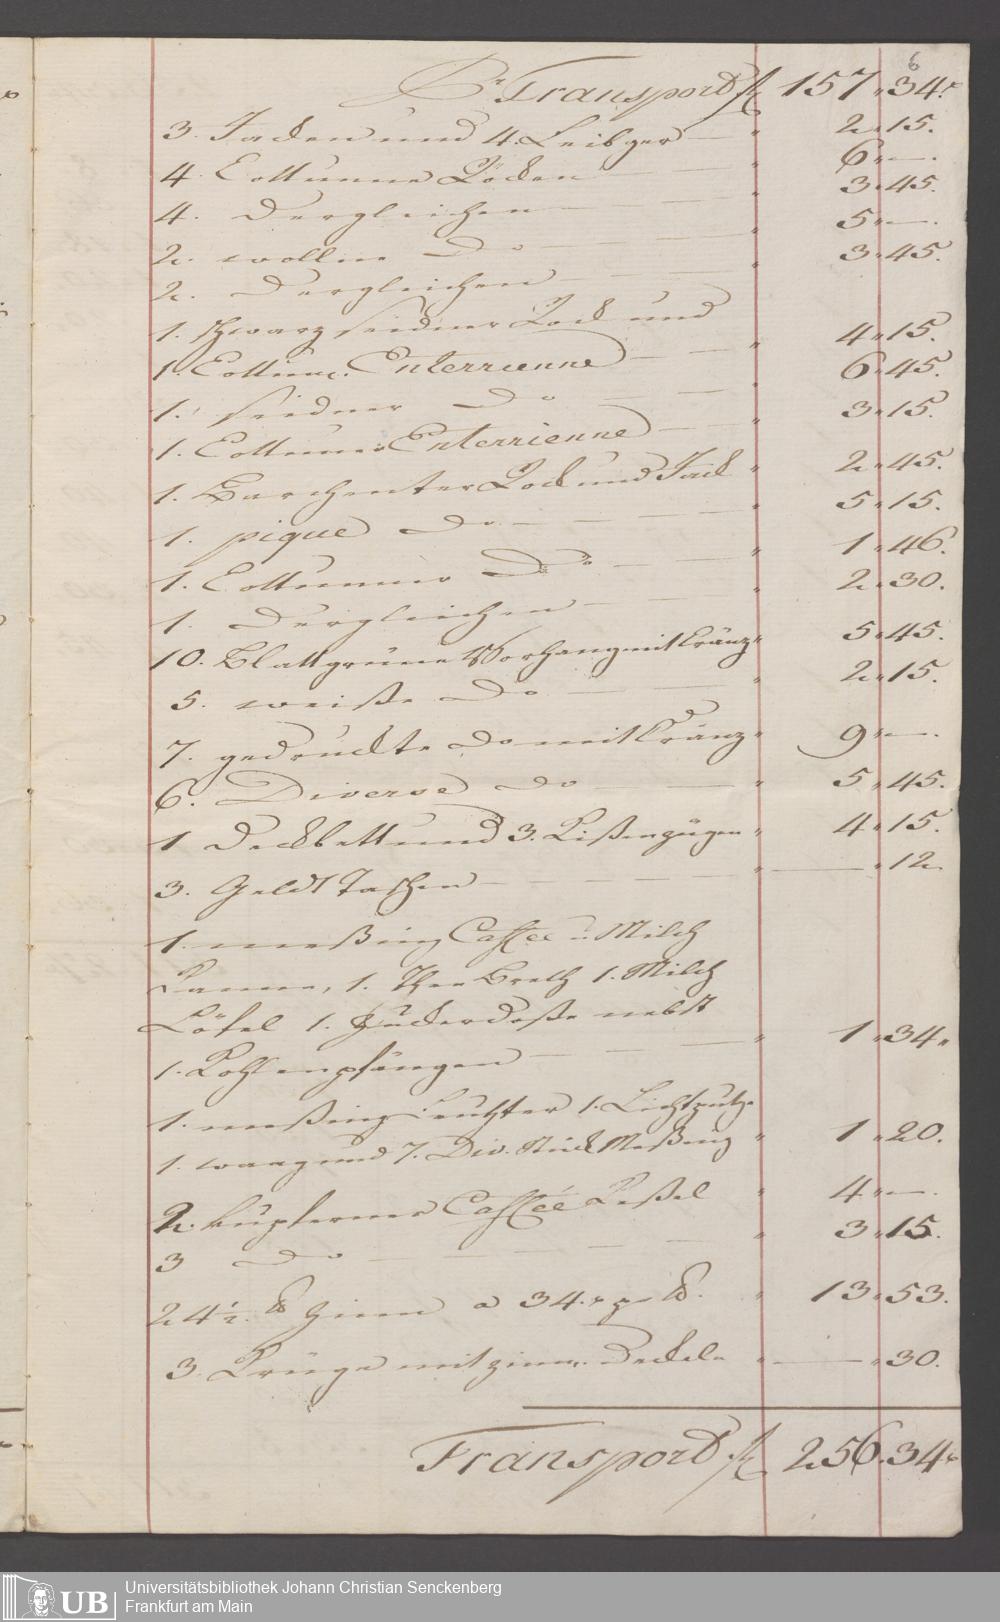 6
Pr Transport fl 157 " 34 x
3. Jacken und 4. Leibger — " 2 " 15.
4. Cottunne Röcken — — " 6 " —.
4. Dergleichen — — " 3 " 45.
2. wollne Do — — — " 5 " —.
2. Dergleichen — — " 3 " 45.
1. schwarz seidner Rock und
1. Cottun. Enterrienne — — " 4 " 15.
1. seidner Do — — — 6 " 45.
1. Cottunne Enterrienne — — " 3 " 15.
1. Barchenter Rock und Jack " 2 " 45.
1. pique Do — — — — " 5 " 15.
1. Cottunner Do — — " 1 " 46.
1. Dergleichen — — " 2 " 30.
10. Blattgrüne Vorhang mit Kränz " 5 " 45.
5. weiße Do — — " 2 " 15.
7. gedruckte Do mit Kränz " 9 " —.
6. Diverse Do — " 5 " 45.
1 Deckbett und 3. Kißenzügen " 4 " 15.
3. Geldt Taschen — — — " — " 12
1. meßing Caffee u. Milch
Kanne, 1. Thee Breth 1. Milch
Löfel 1. Zuckerdoße nebst
1. Kohlenpfängen — — — " 1 " 34 "
1. meßing Leuchter 1. Lichtputze
1. waag und 7. Div. Stück Meßing " 1 " 20.
2. kupferne Caffée Keßel " 4 " —.
3 Do — — — — " 3 " 15.
24 1/2. ℔ Zinn a 34. x pr ℔. " 13 " 53.
3. Krüge mit zinn. Deckeln " — " 30.
Transport fl 256. 34 x
Universitätsbibliothek Johann Christian Senckenberg
Frankfurt am Main
UB